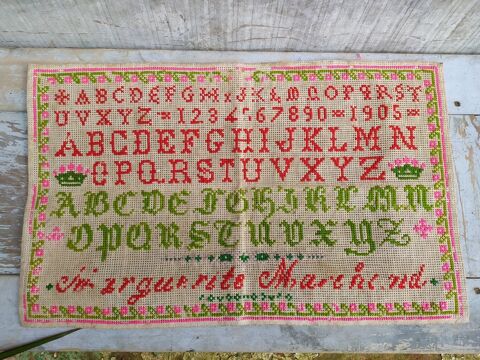 ABCDEFGHIJKLMNOPQRSY
UVXYZ=1234567890=1905=
ABCDEFGHIJKLMN
OPQRSTUVXYZ
ABCDEFGHIKLMN
OPQRSTUVXYZ
Marguerite Marchend